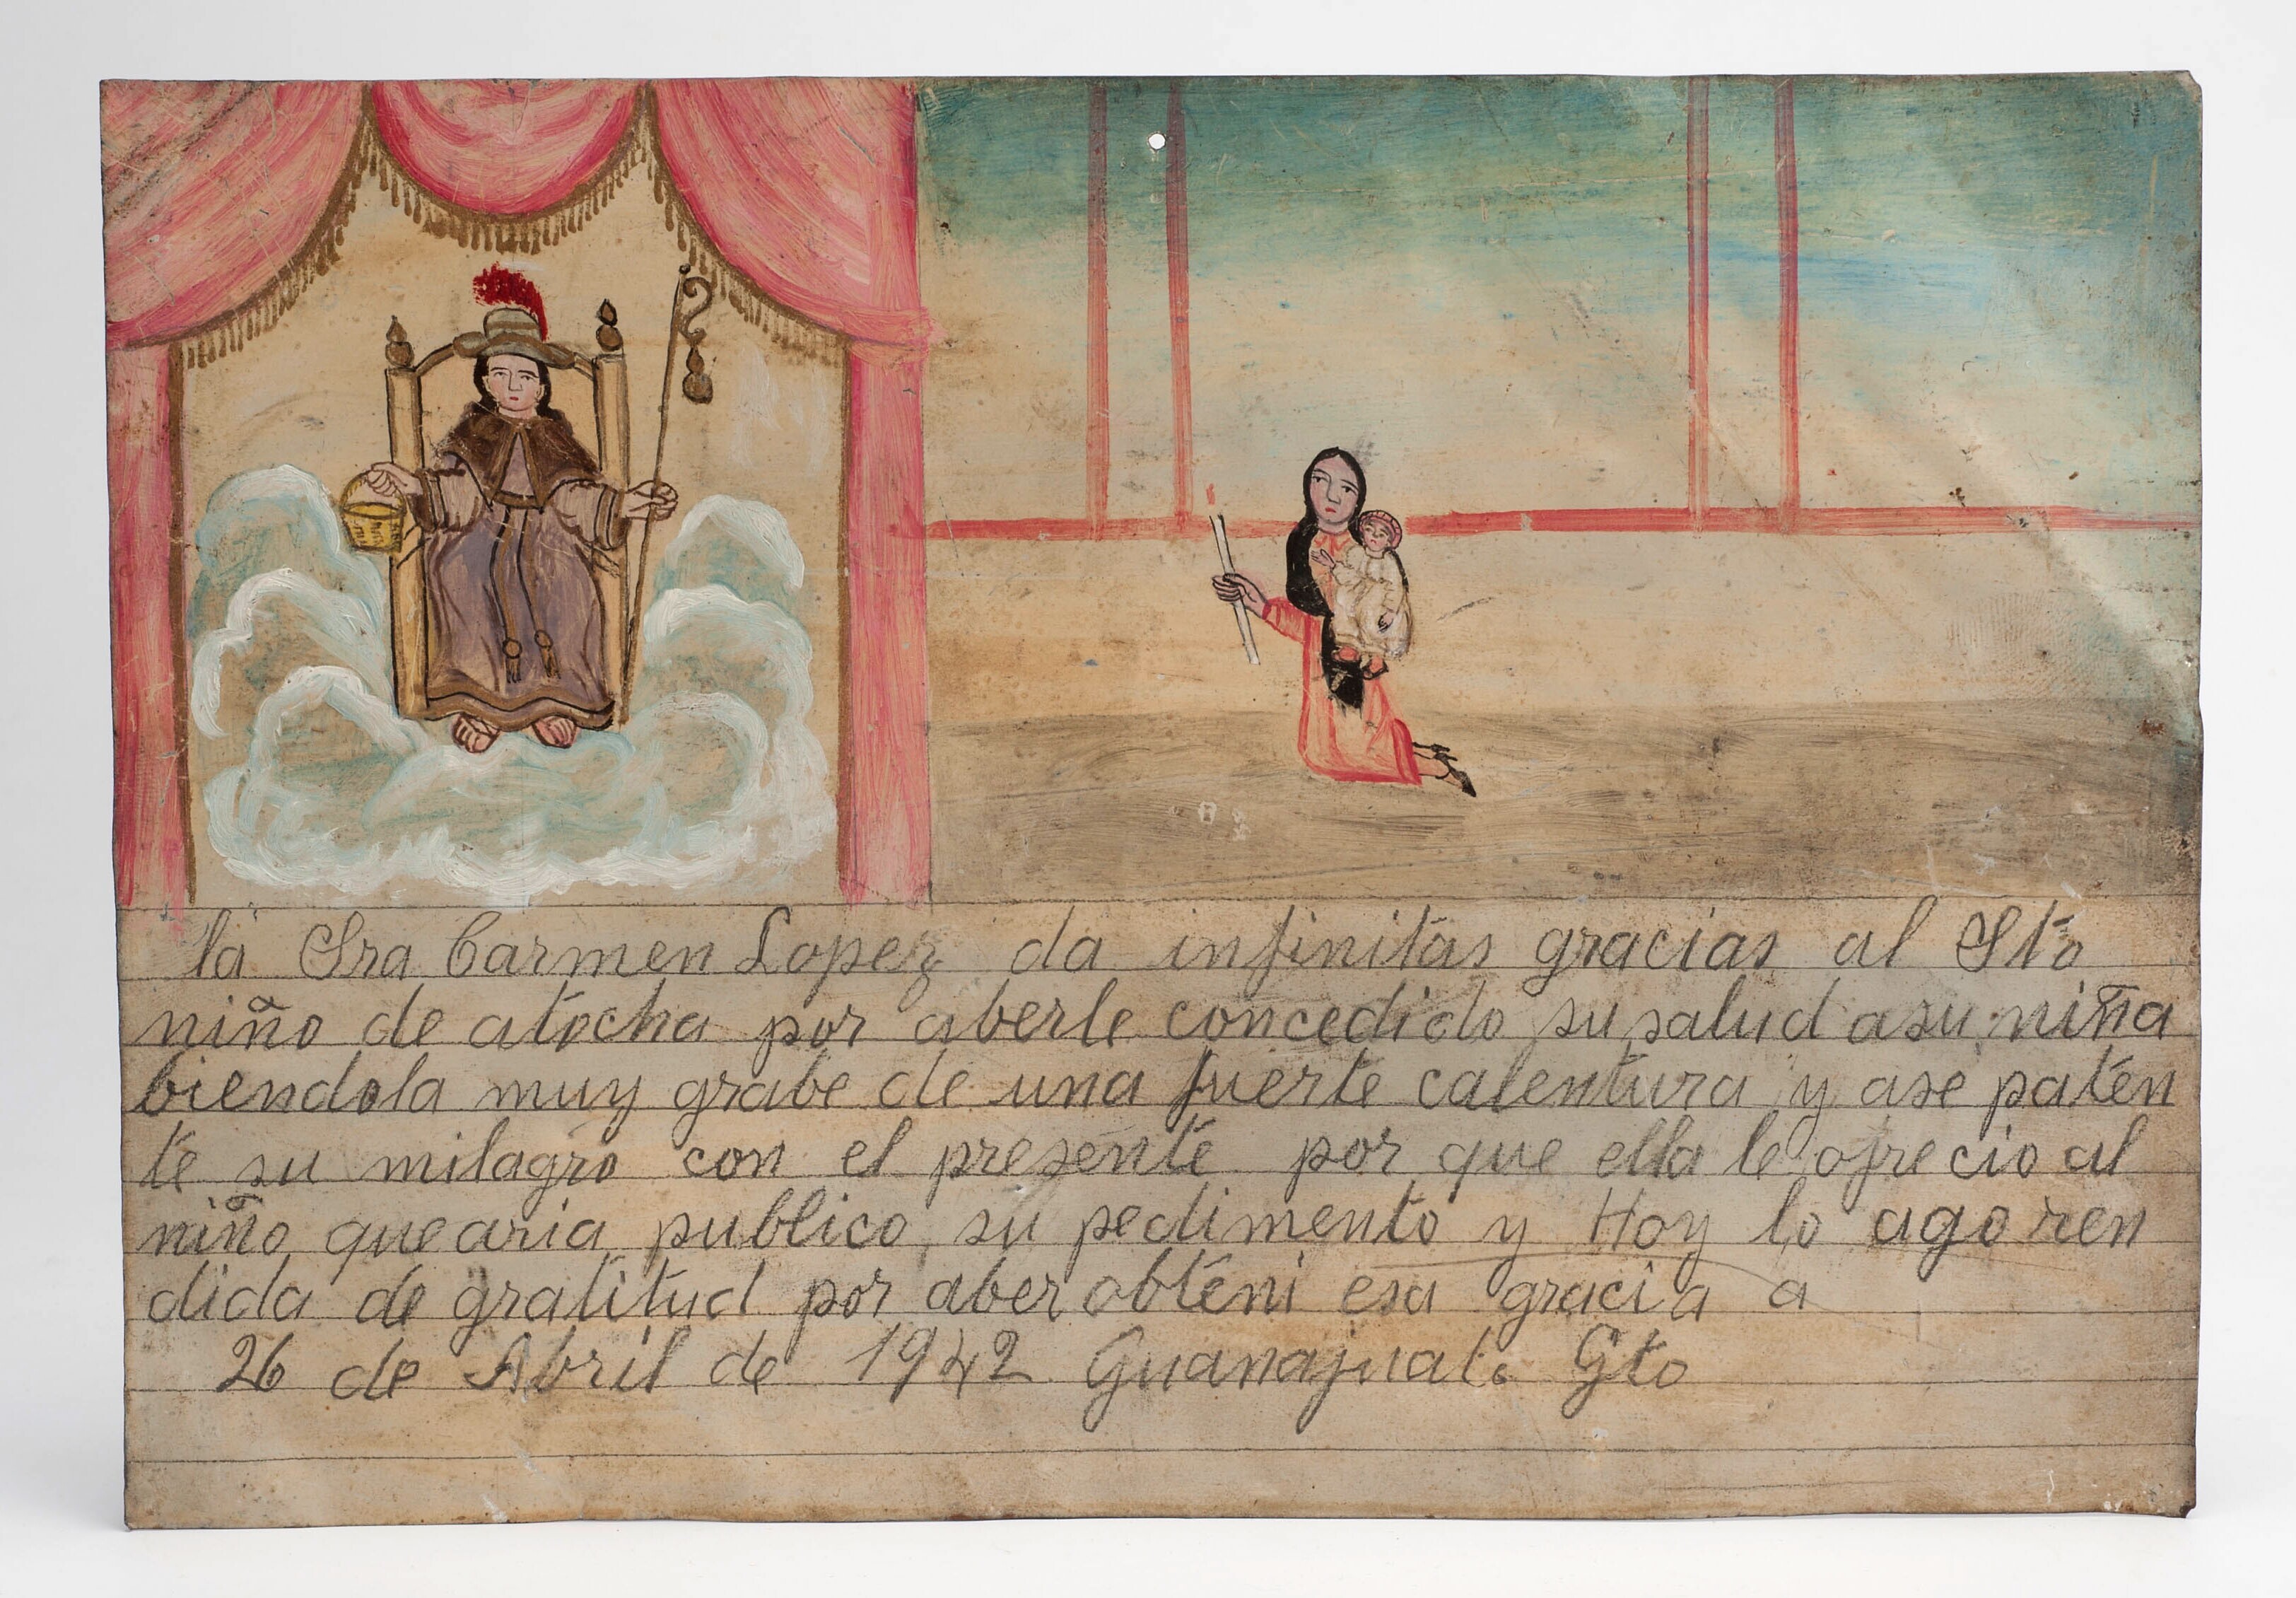 la Sra Carmen Lopez da infinitas gracias al Sto
niño de atocha por aberle concedido su salud a su niña
biendola muy grabe de una fuerte calentura y ase paten
te su milagro con el presente por que ella le ofrecio al
niño que aria publico su pedimento y Hoy lo ago ren
dida de gratitud por aber obteni esa gracia a
26 de Abril de 1942 Guanajuato Gto